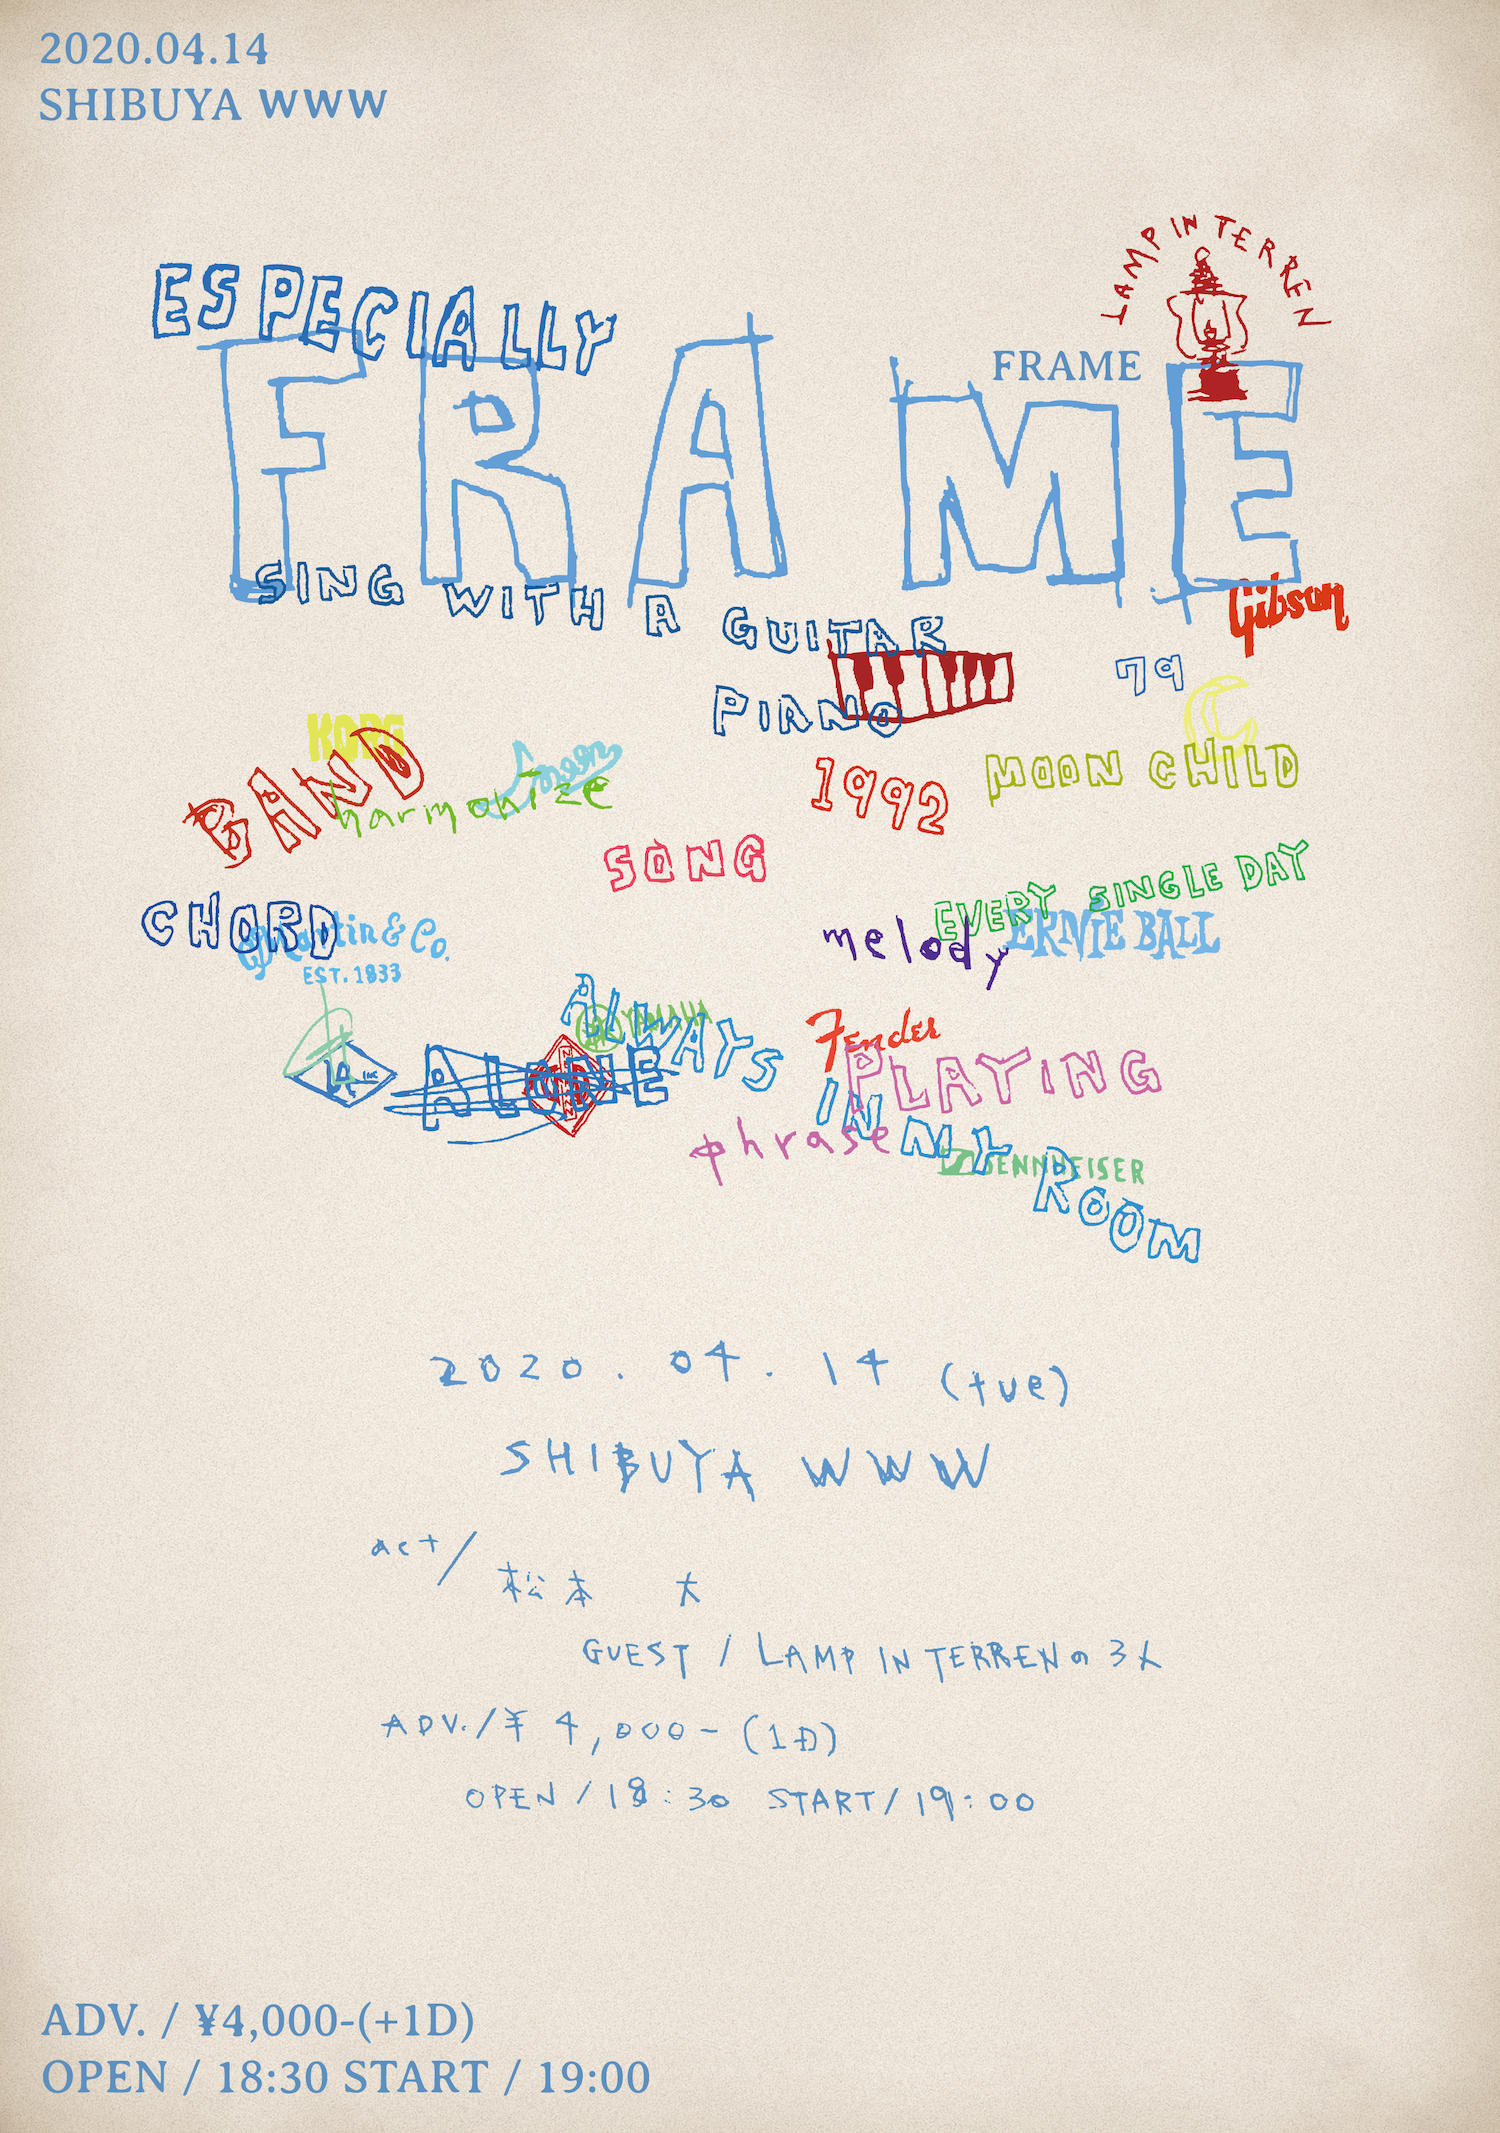 2020.04.14
SHIBUYA WWW
LAMP IN TERREN
ESPECIALLY
FRAME
FRAME
SING WITH A GUITAR
Gibson
79
PIANO
KORG
BAND
moon
harmonize
1992
MOON CHILD
SONG
EVERY SINGLE DAY
CHORD
Martin & Co.
EST. 1833
melody
ERNIE BALL
ALWAYS
YAMAHA
Fender
ALONE
PLAYING
IN MY ROOM
phrase
SENNHEISER
2020.04.14 (tue)
SHIBUYA WWW
act/
松本 大
GUEST / LAMP IN TERRENの3人
ADV./¥4,000-(1D)
OPEN/18:30 START/19:00
ADV. / ¥4,000-(+1D)
OPEN / 18:30 START / 19:00